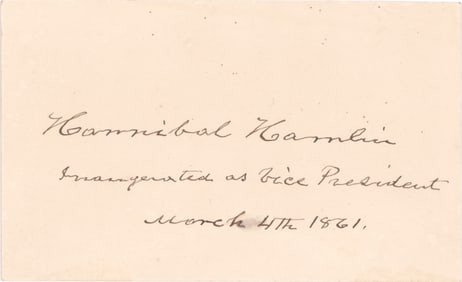 Hannibal Hamlin
Inaugerated as Vice President
March 4th 1861.